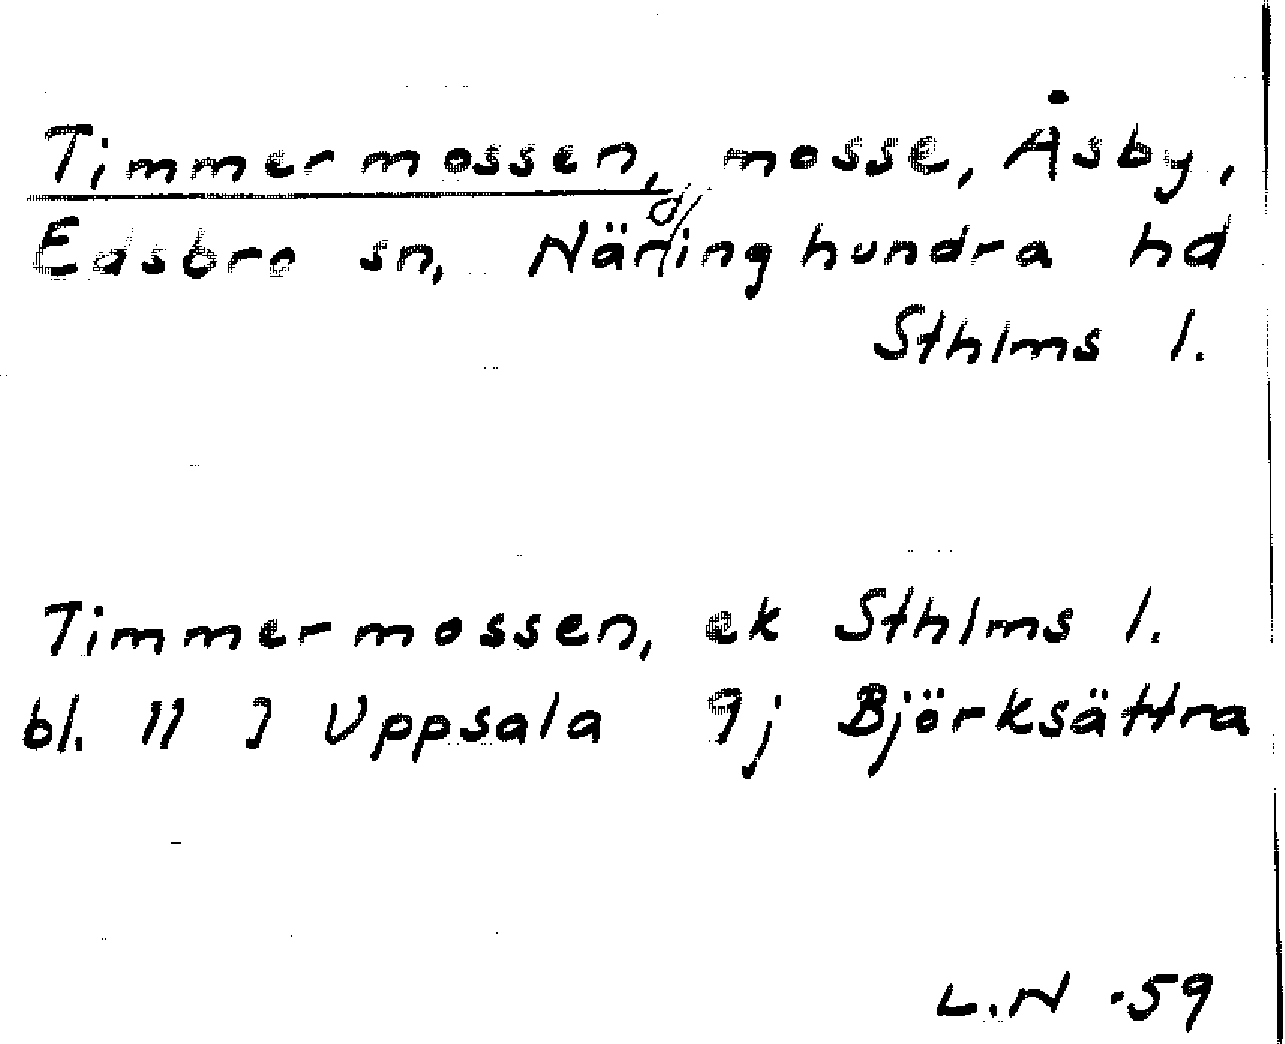 Timmermossen, mosse, Åsby,
Edsbro sn, Närdinghundra hd
Sthlms l.
Timmermossen, ek Sthlms l.
bl. 11 I Uppsala 9j Björksättra
L.N -59